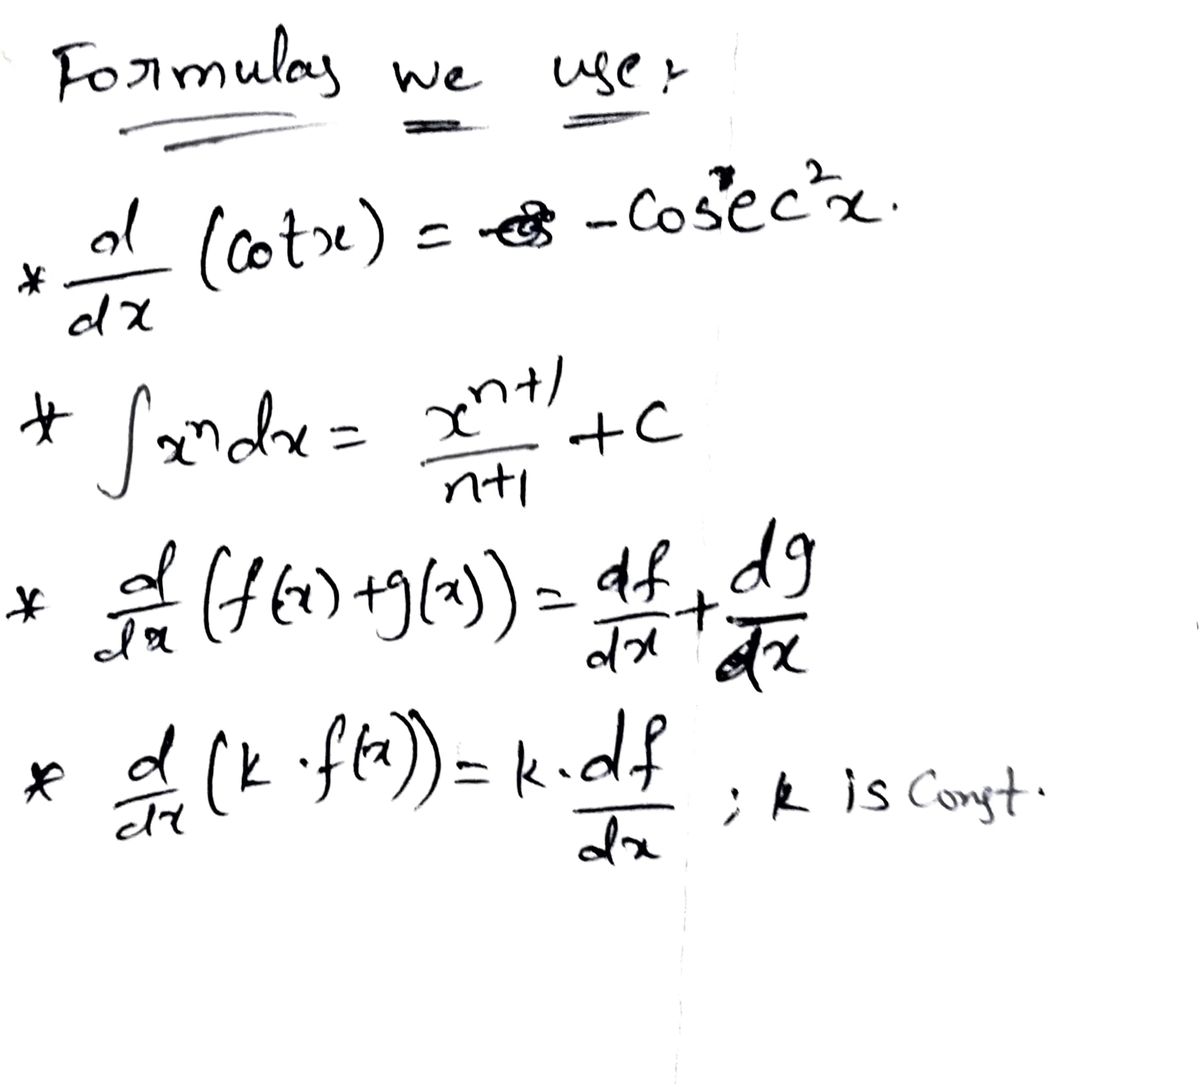 Formulas we use:
* d/dx (cotx) = -Cosec²x.
* ∫xⁿdx = xⁿ⁺¹/n+1 + C
* d/dx (f(x)+g(x)) = df/dx + dg/dx
* d/dx (k·f(x)) = k·df/dx ; k is Const.